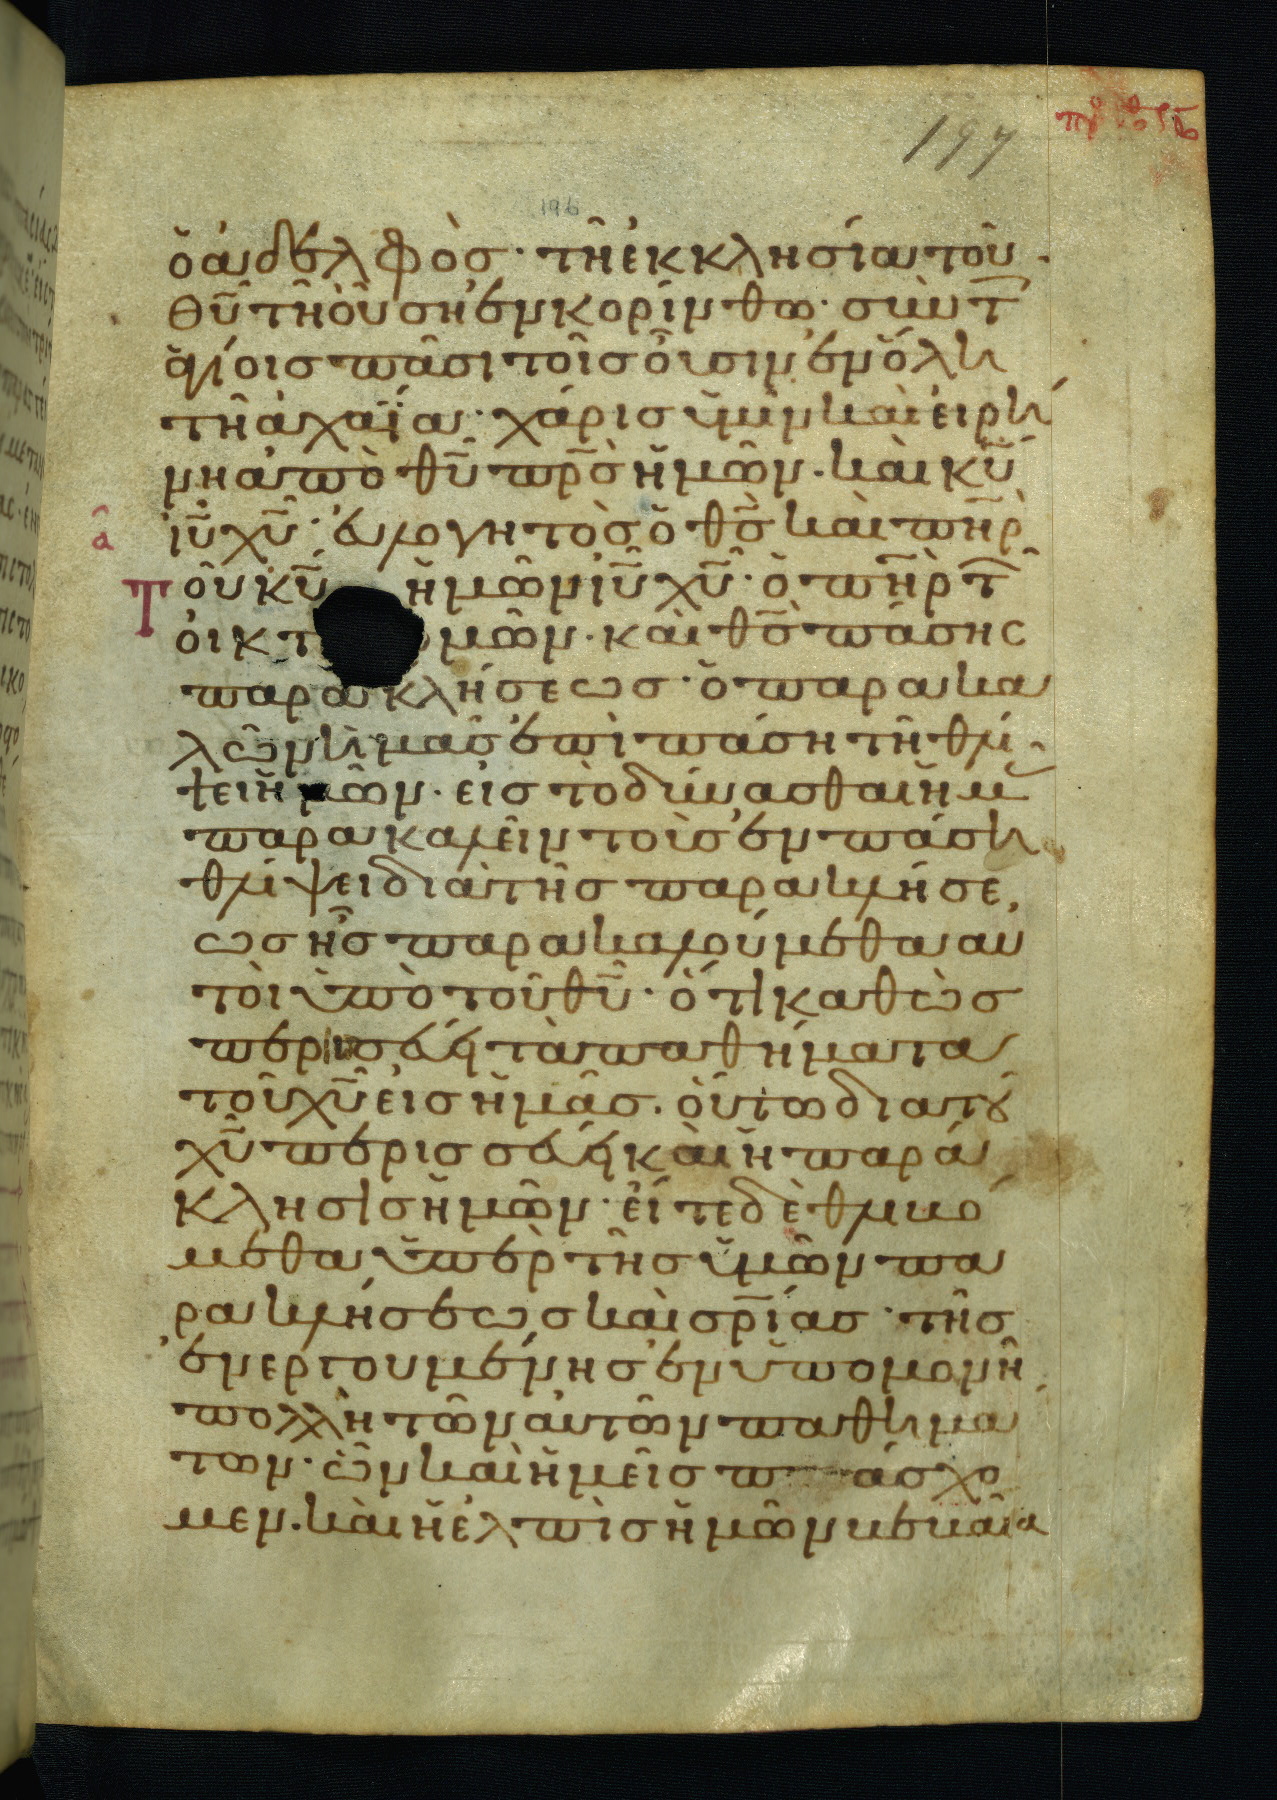 197
196
ὁ ἀδελφὸς· τῆ ἐκκλησία τοῦ
θῦ τῆ οὔση ἐν κορίνθω· σὺν τ
ἁγίοις πᾶσι τοῖς οὖσιν ἐν ὅλη
τῆ ἀχαΐα· χάρις ὑμῖν καὶ εἰρή
νη ἀπὸ θῦ πρς ἡμῶν. καὶ κῦ
ἰῦ χῦ· εὐλογητὸς ὁ θς καὶ πηρ
α
Τοῦ κῦ ἡμῶν ἰῦ χῦ· ὁ πηρ τ
οἰκτ μῶν. καὶ θς πάσης
παρακλήσεως· ὁ παρακα
λῶν ἡμᾶς ἐπὶ πάση τῆ θλί
ψει ἡμῶν. εἰς τὸ δύνασθαι ἡμ
παρακαλεῖν τοὺς ἐν πάση
θλίψει διὰ τῆς παρακλήσε
ως ἧς παρακαλούμεθα αυ
τοὶ ὑπὸ τοῦ θῦ· ὅτι καθὼς
περισσεύει τὰ παθήματα
τοῦ χῦ εἰς ἡμᾶς. οὕτω διὰ τοῦ
χῦ περισσεύει καὶ ἡ παρά
κλησις ἡμῶν· εἴτε δὲ θλιβό
μεθα ὑπὲρ τῆς ὑμῶν πα
ρακλήσεως καὶ σρίας· τῆς
ἐνεργουμένης ἐν ὑπομονῆ
πολλῆ τῶν αὐτῶν παθημα
των· ὧν καὶ ἡμεῖς πάσχο
μεν. καὶ ἡ ἐλπὶς ἡμῶν βεβαία